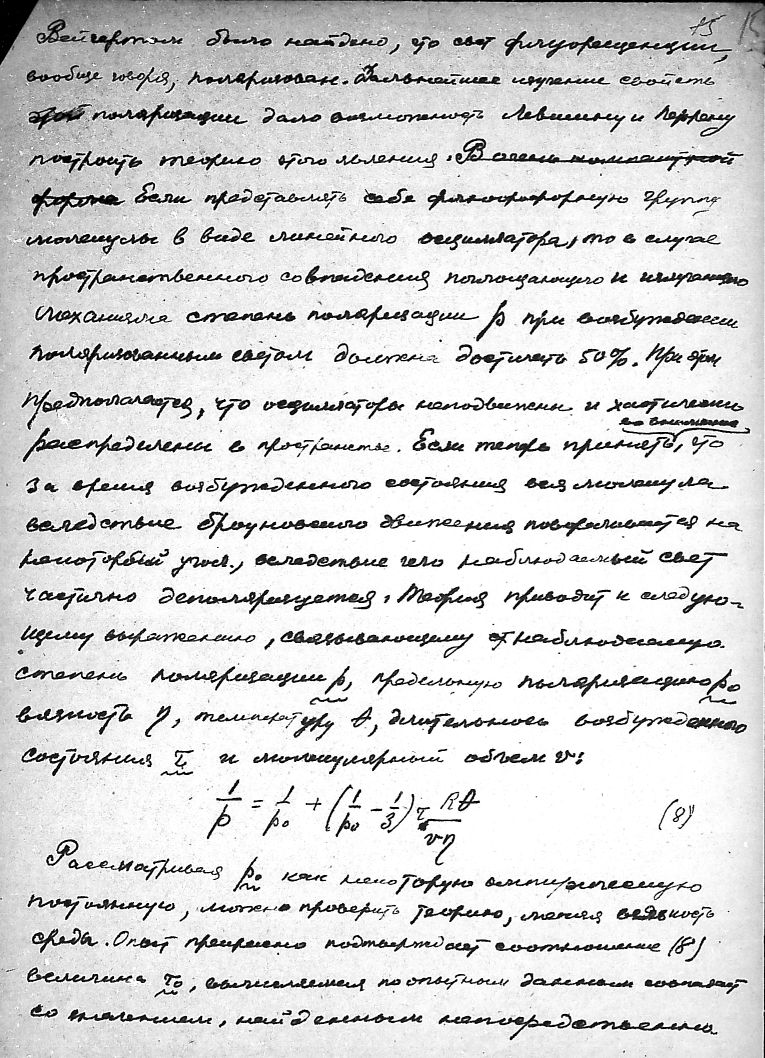 15
Вейгертом было найдено, что свет флуоресценции,
вообще говоря, поляризован. Дальнейшее изучение свойств
этой поляризации дало возможность Левшину и Перрену
построить теорию этого явления. В очень компактной
форме Если представлять себе флюорофорную группу
молекулы в виде линейного осциллятора, то в случае
пространственного совпадения поглощающего и излучающего
механизма степень поляризации p при возбуждении
поляризованным светом должна достигать 50%. При этом
предполагается, что осцилляторы неподвижны и хаотически
во внимание
распределены в пространстве. Если теперь принять, что
за время возбужденного состояния вся молекула
вследствие броуновского движения поворачивается на
некоторый угол, вследствие чего наблюдаемый свет
частично деполяризуется. Теория приводит к следую-
щему выражению, связывающему наблюдаемую
степень поляризации p, предельную поляризацию p₀
вязность η, температуру θ, длительность возбужденного
состояния τ и молекулярный объем v:
1/p = 1/p₀ + (1/p₀ - 1/3) τ Rθ/vη (8)
Рассматривая p₀ как некоторую эмпирическую
постоянную, можно проверить теорию, меняя вязкость
среды. Опыт прекрасно подтверждает соотношение (8)
величина τ₀, вычисляемая по опытным данным совпадает
со значением, найденным непосредственно